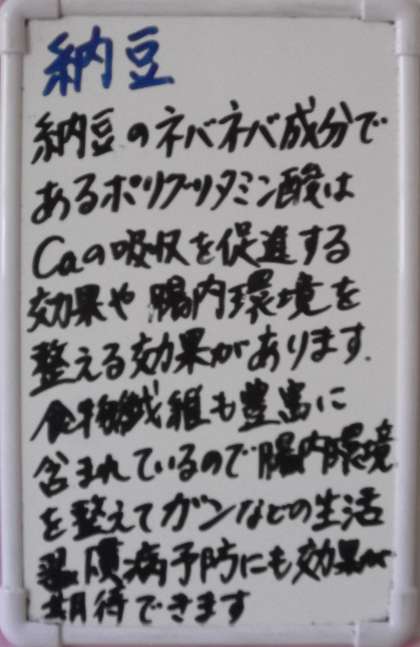 納豆
納豆のネバネバ成分で
あるポリグッタミン酸は
Caの吸収を促進する
効果や腸内環境を
整える効果があります.
食物繊維も豊富に
含まれているので腸内環境
を整えてガンなどの生活
習慣病予防にも効果が
期待できます